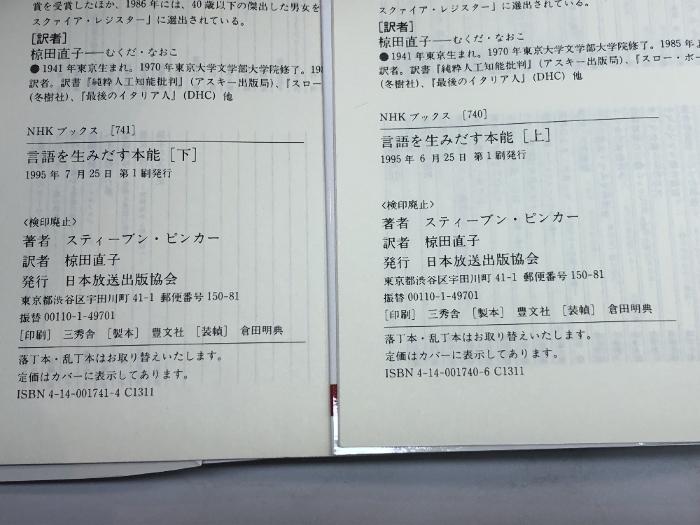 賞を受賞したほか、1986年には、40歳以下の傑出した男女を
スクァイア・レジスター」に選出されている。
[訳者]
椋田直子──むくだ・なおこ
●1941年東京生まれ。1970年東京大学文学部大学院修了。19
訳者。訳書『純粋人工知能批判』(アスキー出版局)、『スロー
(冬樹社)、『最後のイタリア人』(DHC) 他
NHKブックス [741]
言語を生みだす本能[下]
1995年 7月25日 第1刷発行
〈検印廃止〉
著者 スティーブン・ピンカー
訳者 椋田直子
発行 日本放送出版協会
東京都渋谷区宇田川町41-1 郵便番号150-81
振替 00110-1-49701
[印刷] 三秀舎 [製本] 豊文社 [装幀] 倉田明典
落丁本・乱丁本はお取り替えいたします。
定価はカバーに表示してあります。
ISBN 4-14-001741-4 C1311
スクァイア・レジスター」に選出されている。
[訳者]
椋田直子──むくだ・なおこ
●1941年東京生まれ。1970年東京大学文学部大学院修了。1985年
訳者。訳書『純粋人工知能批判』(アスキー出版局)、『スロー・ボー
(冬樹社)、『最後のイタリア人』(DHC) 他
NHKブックス [740]
言語を生みだす本能[上]
1995年 6月25日 第1刷発行
〈検印廃止〉
著者 スティーブン・ピンカー
訳者 椋田直子
発行 日本放送出版協会
東京都渋谷区宇田川町41-1 郵便番号150-81
振替 00110-1-49701
[印刷] 三秀舎 [製本] 豊文社 [装幀] 倉田明典
落丁本・乱丁本はお取り替えいたします。
定価はカバーに表示してあります。
ISBN 4-14-001740-6 C1311